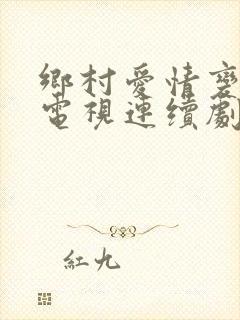 鄉村愛情變
電視連續劇
紅九